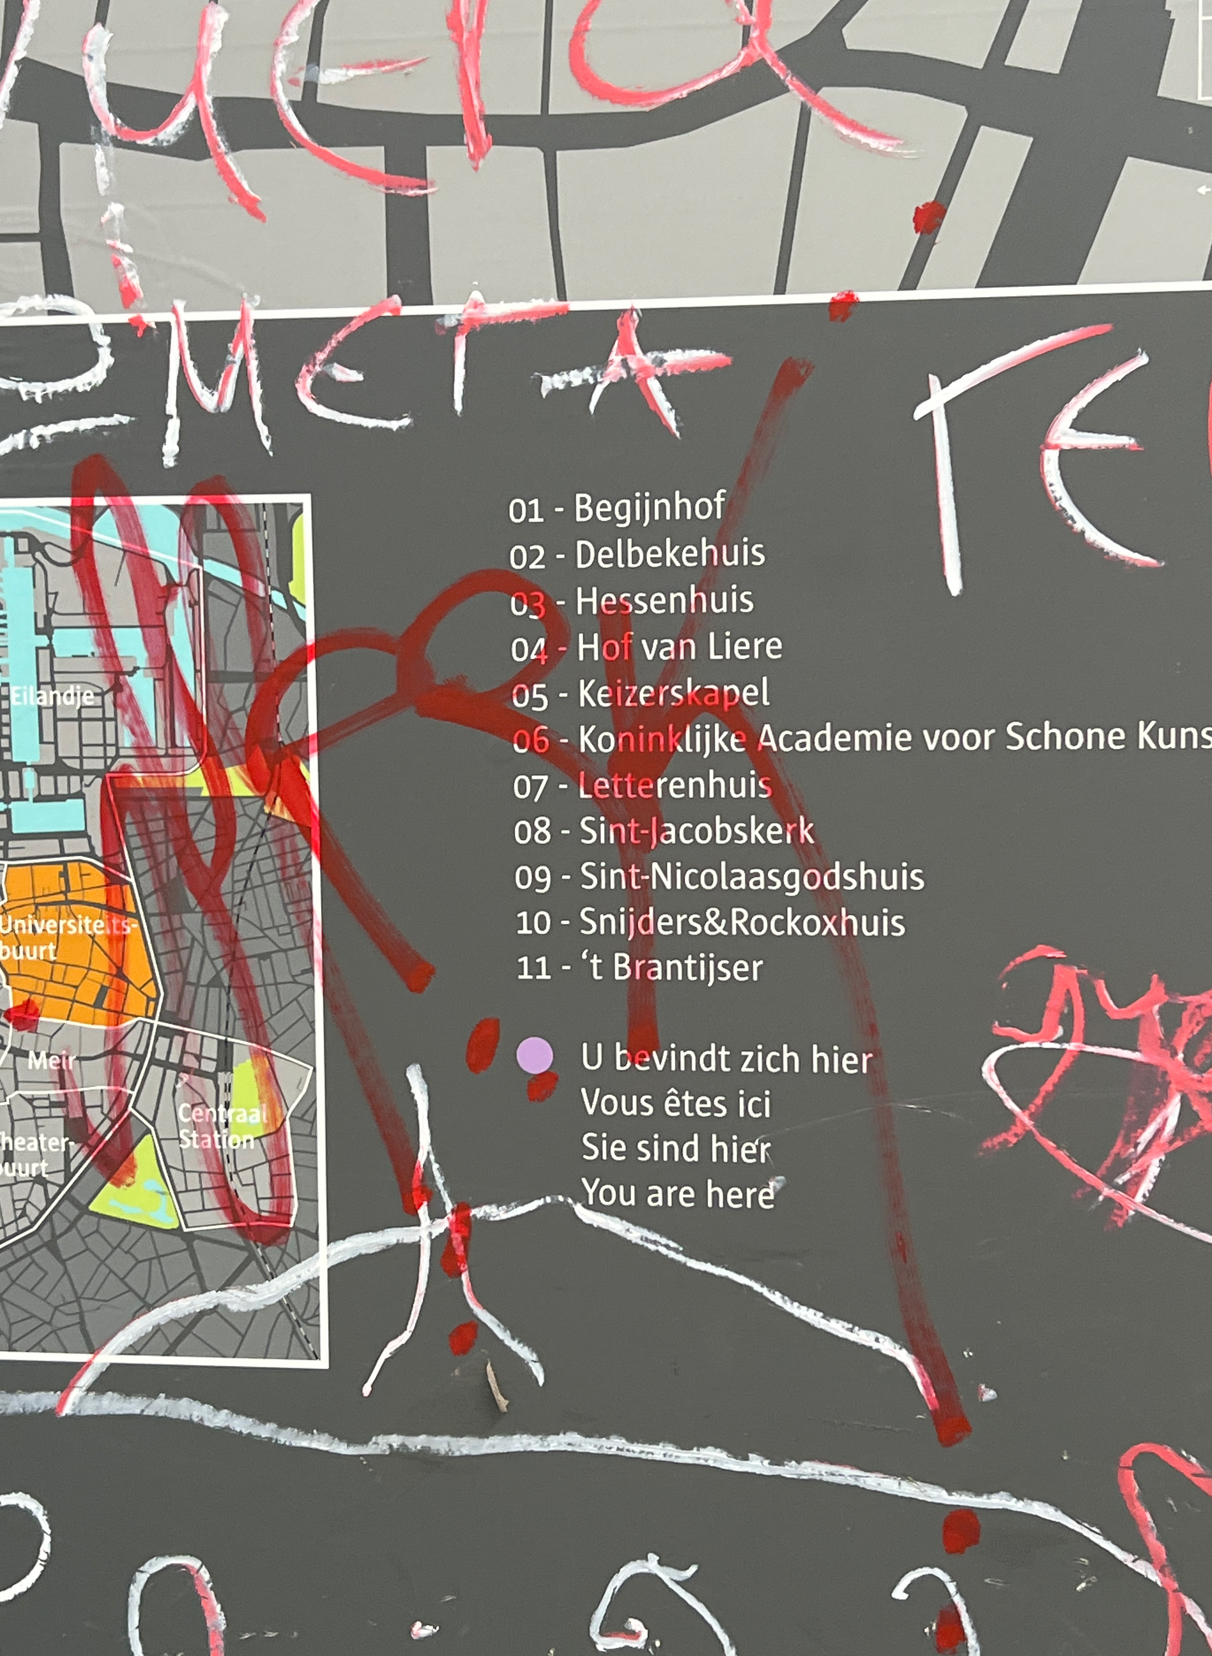 META TE
01 - Begijnhof
02 - Delbekehuis
03 - Hessenhuis
04 - Hof van Liere
05 - Keizerskapel
06 - Koninklijke Academie voor Schone Kuns
07 - Letterenhuis
08 - Sint-Jacobskerk
09 - Sint-Nicolaasgodshuis
10 - Snijders&Rockoxhuis
11 - ‘t Brantijser
U bevindt zich hier
Vous êtes ici
Sie sind hier
You are here
Eilandje
Universiteits-
buurt
Meir
Centraal
Station
heater-
buurt